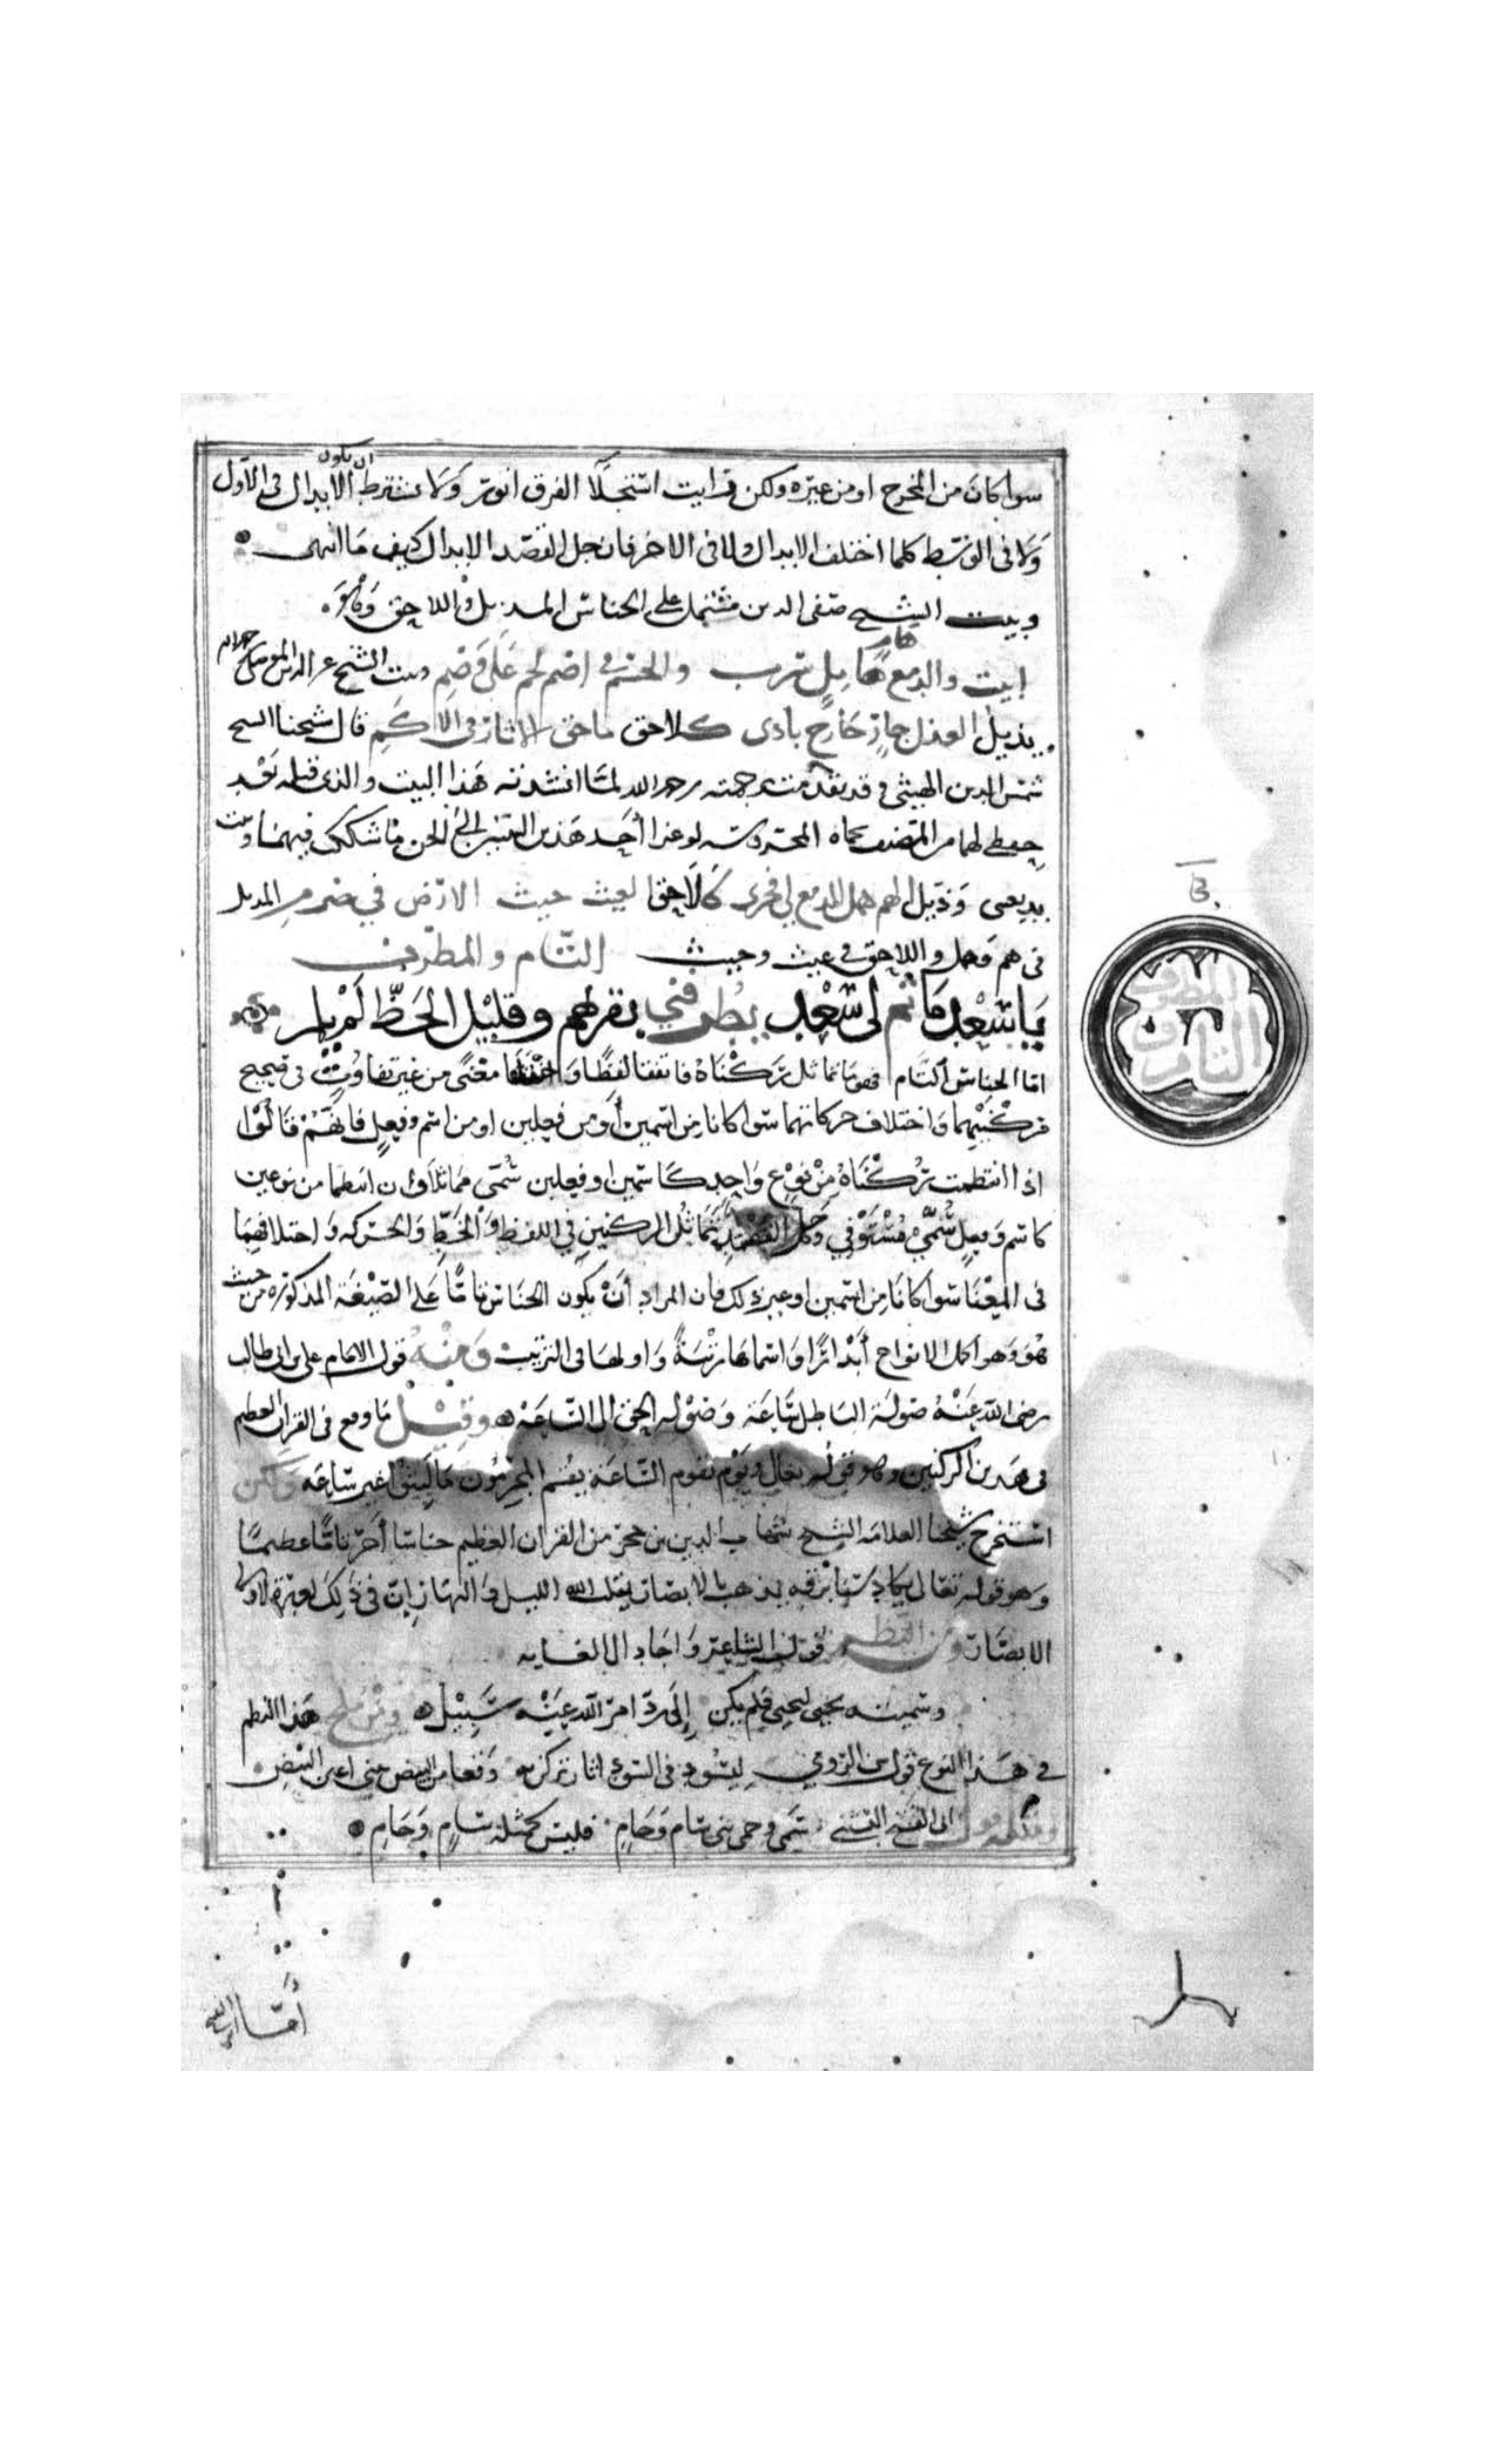 سوا كان من المخرج او من غيره ولكن قرايت استجلا الفرق انور ولا يشترط ان يكون الابدال فى الاول
ولا فى الوسط كلما اختلف الابدال ولا فى الاخر فان جل القصد الابدال كيف ما انتهى
وبيت الشيخ صفى الدين مشتمل على الجناس المذيل واللاحق وهو
ابيت والدمع هام هامل سرب والجسم فى اضم لحم على وضم وبيت الشيخ عز الدين الموصلى
يذيل العذل جار جارح باذى كلاحق ماحق الاثار فى الاكم قال شيخنا الشيخ
شمس الدين الهيتى وقد تقدمت ترجمته رحمه الله لما انشدته هذا البيت والذى قبله بعد
حفظى لهما من المصنف بحماه المحروسه لو عزا احد هذين البيتين الى الجن ما شككت فيهما وبيت
بديعيتى وذيل الهم همل الدمع لى فجرى كلاحق الغيث حيث الارض فى ضرم المذيل
فى هم وهمل واللاحق فى غيث وحيث التام والمطرف
يا سعد ما تم لى سعد يطرفنى بقربهم وقليل الحظ لم يلم
اما الجناس التام فهو ما تماثل ركناه فاتفقا لفظا واختلفا معنى من غير تفاوت فى تصحيح
تركيبهما واختلاف حركاتهما سوا كانا من اسمين او من فعلين او من اسم وفعل فانهم قالوا
اذا انتظمت ركناه من نوع واحد كاسمين او فعلين سمى مماثلا وان انتظما من نوعين
كاسم وفعل سمى مستوفى وجل القصد تماثل الركنين فى اللفظ والخط والحركه واختلافهما
فى المعنا سوا كانا من اسمين او غير ذلك فان المراد ان يكون الجناس تاما على الصيغة المذكوره من حيث
هو وهو اكمل الانواع ابداعا واسماها رتبة واولها فى الترتيب ومنه قول الامام على بن ابى طالب
رضى الله عنه صولة الباطل ساعة وصوله الحق الى الساعه وقيل ما وقع فى القران العظيم
فى هذين الركنين وهو قوله تعالى ويوم تقوم الساعة يقسم المجرمون ما لبثوا غير ساعه ولكن
استخرج شيخنا العلامه الشيخ شهاب الدين بن حجر من القران العظيم جناسا اخر تاما عظيما
وهو قوله تعالى يكاد سنا برقه يذهب بالابصار يقلب الله الليل والنهار ان فى ذلك لعبرة لاولى
الابصار ومن النظم قول الشاعر واجاد الى الغايه
وسميته يحيى ليحيى فلم يكن الى رد امر الله فيه سبيل ومن ملح هذا النظم
فى هذا النوع قول بن الرومى للسود فى السود اثار تركن بها وقعا من البيض يثنى اعين البيض
ومثله قول ابى الفتح البستى سمى وحمى بنى سام وحام فليس كمثله سام وحام
المطرف
التام و
اما